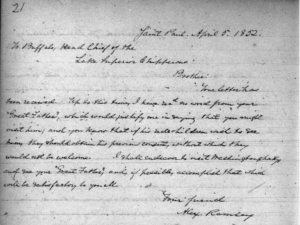 21
Saint Paul April 5. 1852.
To Buffalo, Head Chief of the
Lake Superior Chippewas
Brother:
Your letter has
been received. Up to this time, I have had no word from your
"Great Father," which would justify me in saying that you ought
visit him; and you know that if his red children wish to see
him they should obtain his previous consent, without which they
would not be welcome. I shall endeavor to visit Washington shortly
and see your "Great Father," and if possible, accomplish that which
will be satisfactory to you all.
Your friend
Alex Ramsey